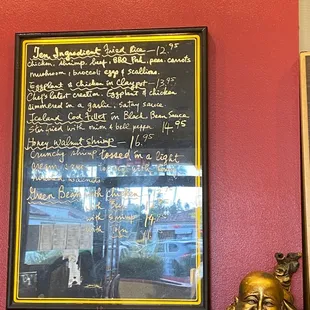 Ten Ingredient Fried Rice — 12.95
chicken, shrimp, beef, BBQ Pork, peas, carrots
mushroom, broccoli, eggs & scallions.
Eggplant & chicken in Claypot — 13.95
Chef's latest creation. Eggplant & chicken
simmered in a garlic, satay sauce.
Iceland Cod Fillet in Black Bean Sauce
Stir fried with onion & bell pepper 14.95
Honey Walnut Shrimp — 16.95
Crunchy shrimp tossed in a light
cream
walnuts
Green Bean with chicken
with Beef
with Shrimp
with